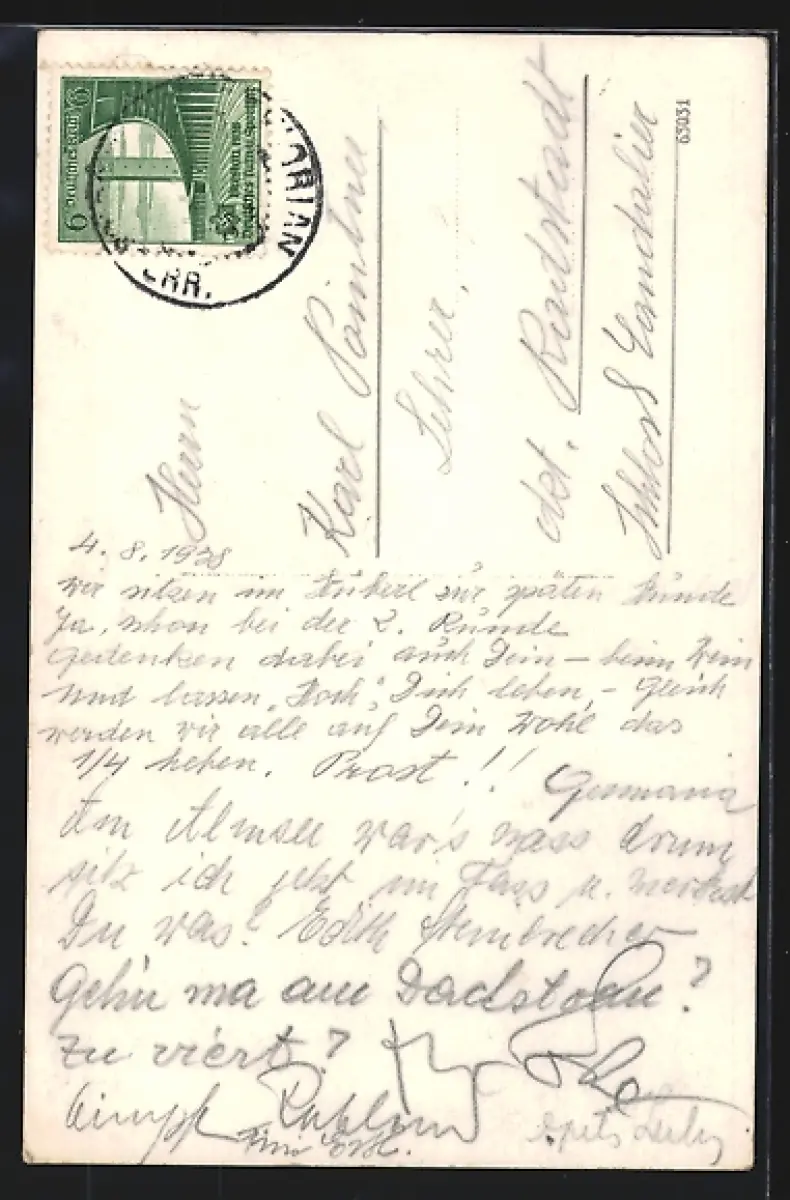 6
Nürnberg 1938
Deutsches Turn- u. Sportfest
FLORIAN
ERR.
63031
Herrn
Karl
Lehrer,
dzt. Radstadt
Schloss
4. 8. 1938
Wir sitzen im Stüberl zur späten Stunde
Ja, schon bei der 2. Runde
gedenken dabei auch Dein – beim Wein
und lassen „Hoch“ Dich leben, – Gleich
werden wir alle auf Dein Wohl das
1/4 heben. Prost!!
Germania
Am Almsee war's nass drum
sitz ich jetzt im Fass u. merkst
Du was? Edith Steinbrecher
Geh'n ma am Dachstoan?
Zu viert?